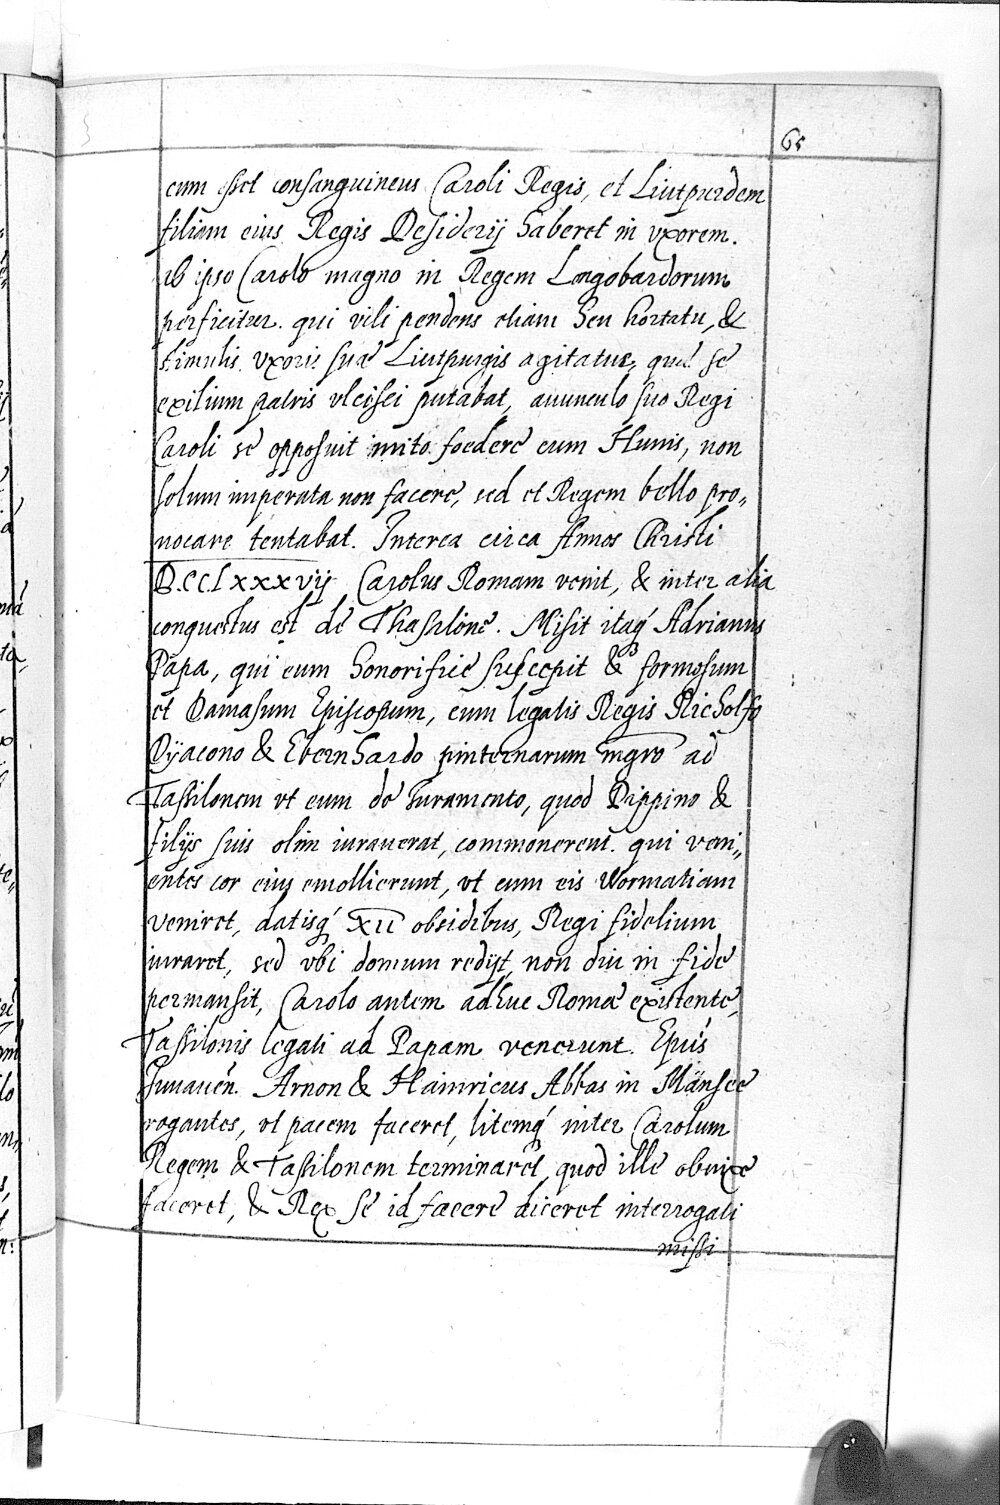 65
cum esset consanguineus Caroli Regis, et Liutpurdem
filiam eius Regis Desiderij haberet in vxorem.
ab ipso Carolo magno in Regem Longobardorum
perficitur. qui vili pendens etiam seu hortatu, &
stimulis vxoris suæ Liutpurgis agitatur, quæ se
exilium patris vlcisci putabat, auunculo suo Regi
Caroli se opposuit inito foedere cum Hunis, non
solum imperata non facere, sed et Regem bello pro„
uocare tentabat. Interea circa Annos Christi
D.CCLxxxvij Carolus Romam venit, & inter alia
conquestus est de Thassilone. Misit itaq́ Adrianus
Papa, qui eum honorificie suscepit & formosum
et Damasum Episcopum, cum legatis Regis Richolfo
Dyacono & Ebernhardo pinternarum mgro ad
Tassilonem vt eum de Iuramento, quod Pippino &
filijs suis olim iurauerat, commonerent. qui veni„
entes cor eius emollierunt, vt cum eis Wormatiam
veniret, datisq́ XII obsidibus, Regi fidelium
iuraret, sed vbi domum redijt, non diu in fide
permansit, Carolo autem adhuc Romæ existente,
Tassilonis legati ad Papam venerunt. Epūs
Iuuauen. Arnon & Hainricus Abbas in Mänsee
rogantes, vt pacem faceret, litemq́ inter Carolum
Regem & Tassilonem terminaret, quod ille obnixe
faceret, & Rex se id facere diceret interrogati
missi